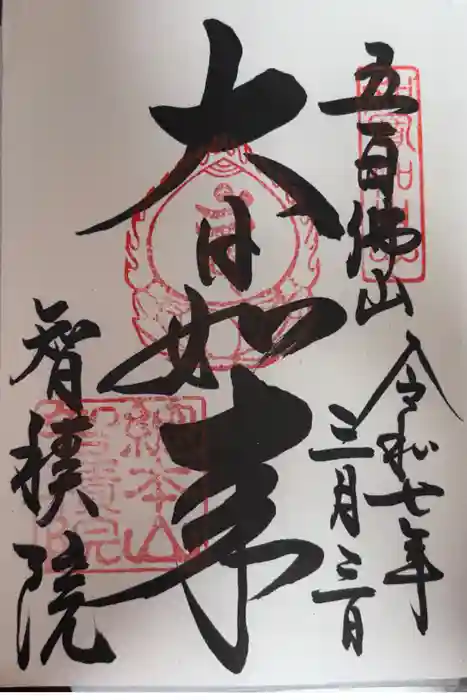 五百佛山
令和七年
三月三日
大日如来
智積院
總本山
智積院